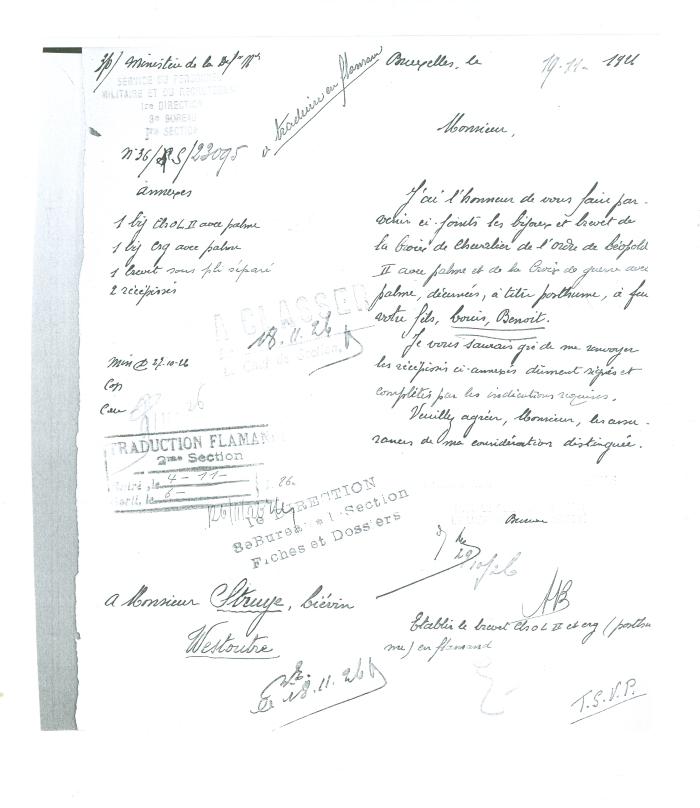 Ministère de la Défse Nle
Bruxelles, le 19-11- 1926
SERVICE DU PERSONNEL
MILITAIRE ET DU RECRUTEMENT
1re DIRECTION
3e BUREAU
2me SECTION
à traduire en flamand
N° 36/ /23095
Monsieur,
annexes
J'ai l'honneur de vous faire par-
venir ci-joints les bijoux et brevet de
la Croix de Chevalier de l'Ordre de Léopold
II avec palme et de la Croix de guerre avec
palme, décernés, à titre posthume, à feu
votre fils, Louis, Benoit.
1 bij ChOL II avec palme
1 bij Crg avec palme
1 brevet sous pli séparé
2 récépissés
A CLASSER
18.11.26
Le Chef de Section,
Je vous saurais gré de me renvoyer
les récépissés ci-annexés dûment signés et
complétés par les indications requises.
Veuillez agréer, Monsieur, les assu-
rances de ma considération distinguée.
Min 27.10.26
Cop
TRADUCTION FLAMAN
2me Section
Entré, le 4-11-
Sorti, le 6-
26
1e DIRECTION
3e Bureau Section
Fiches et Dossiers
29/10/26
A Monsieur Struye, Liévin
Westoutre
AB
Etablir le brevet Ch OL II et crg (posthu
me) en flamand
Le 18.11.26
T.S.V.P.